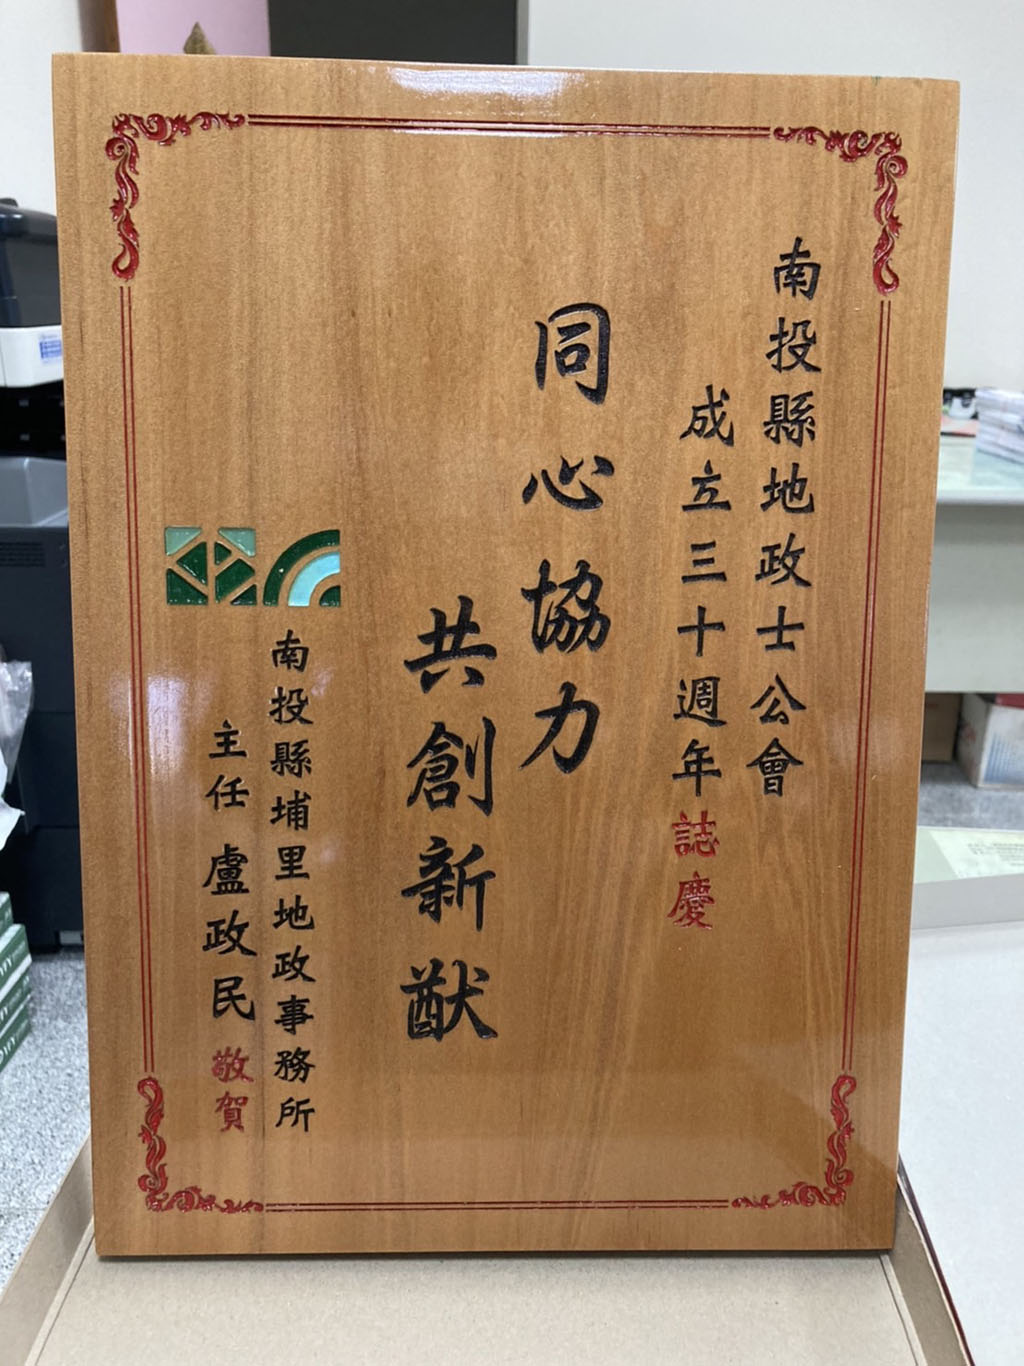 南投縣地政士公會
成立三十週年誌慶
同心協力
共創新猷
南投縣埔里地政事務所
主任盧政民敬賀